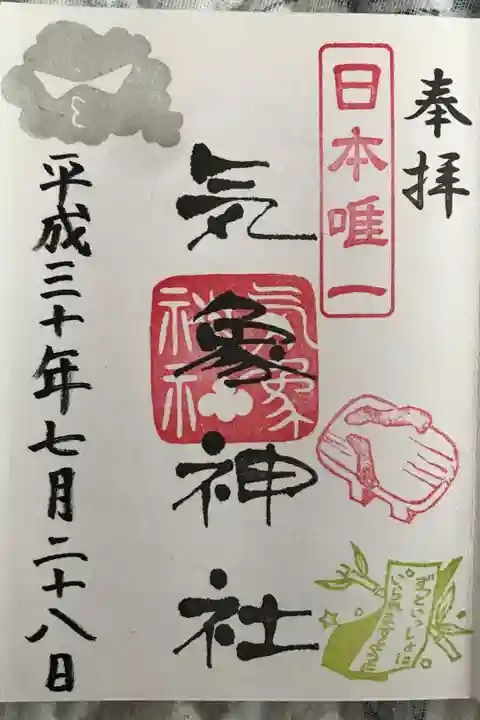 奉拝
日本唯一
気象神社
気象神社
平成三十年七月二十八日